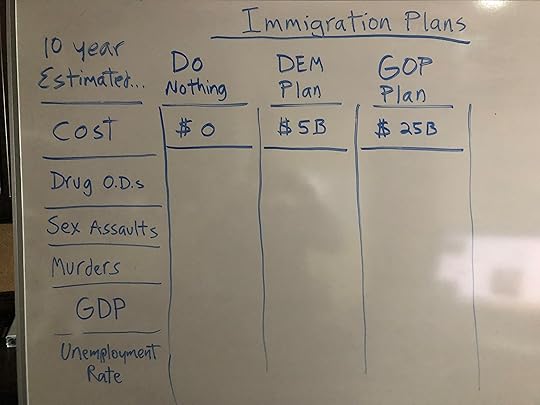 Immigration Plans
10 year
Estimated...
Do
Nothing
DEM
Plan
GOP
Plan
COST
$ 0
$ 5B
$ 25B
Drug O.D.s
Sex Assaults
Murders
GDP
Unemployment
Rate